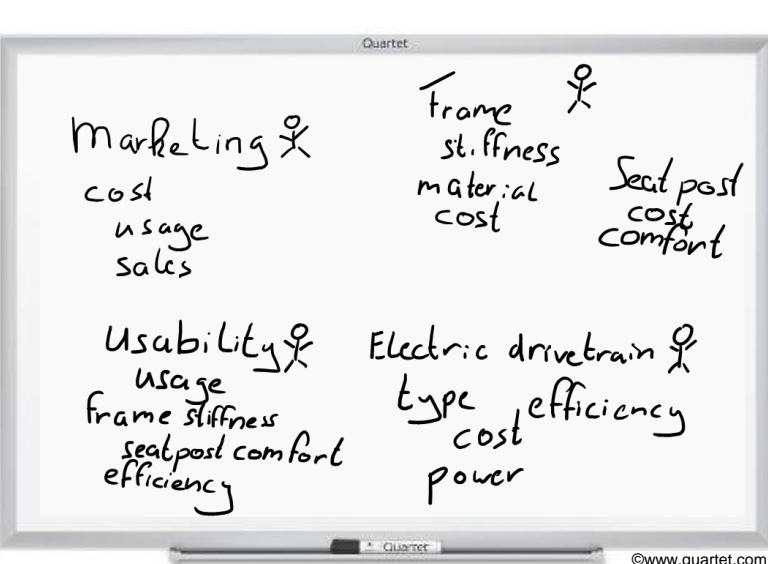 Quartet
Marketing
cost
usage
sales
Frame
stiffness
material
cost
Seat post
cost
comfort
Usability
usage
frame stiffness
seatpost comfort
efficiency
Electric drivetrain
type efficiency
cost
power
Quartet
©www.quartet.com